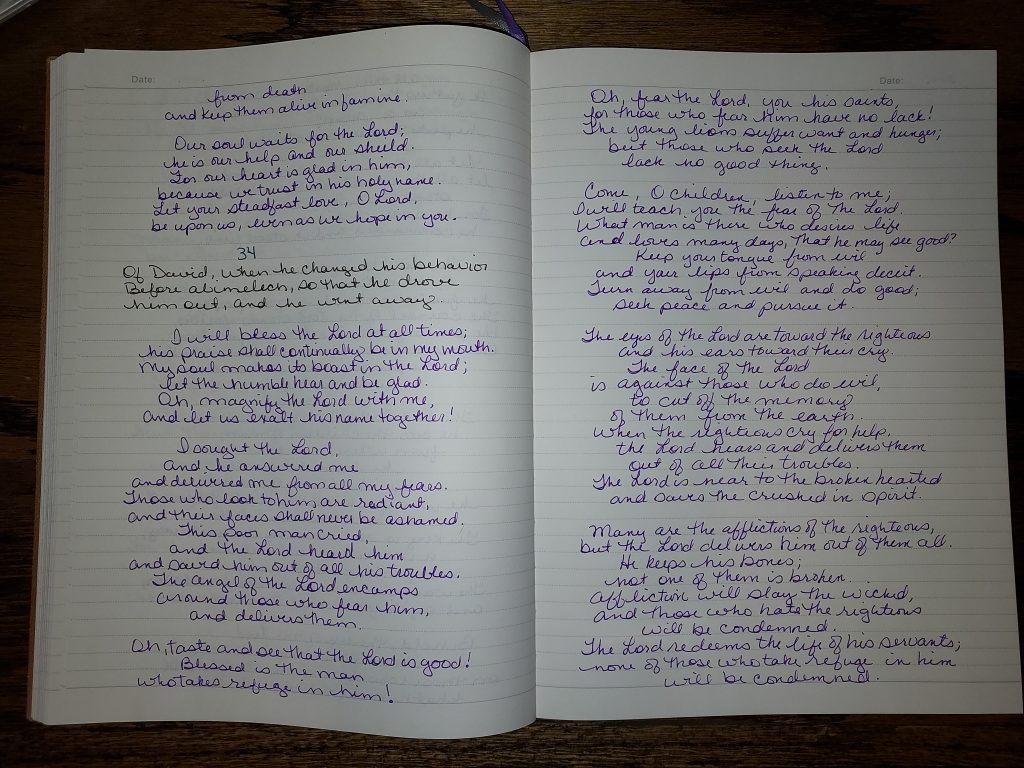 Date:
from death
and keep them alive in famine.
Our soul waits for the Lord;
he is our help and our shield.
For our heart is glad in him,
because we trust in his holy name.
Let your steadfast love, O Lord,
be upon us, even as we hope in you.
34
Of David, when he changed his behavior
Before abimelech, so that he drove
him out, and he went away.
I will bless the Lord at all times;
his praise shall continually be in my mouth.
My soul makes its boast in the Lord;
let the humble hear and be glad.
Oh, magnify the Lord with me,
and let us exalt his name together!
I sought the Lord,
and he answered me
and delivered me from all my fears.
Those who look to him are radiant,
and their faces shall never be ashamed.
This poor man cried,
and the Lord heard him
and saved him out of all his troubles.
The angel of the Lord encamps
around those who fear him,
and delivers them.
Oh, taste and see that the Lord is good!
Blessed is the man
who takes refuge in him!
Date:
Oh, fear the Lord, you his saints,
for those who fear him have no lack!
The young lions suffer want and hunger;
but those who seek the Lord
lack no good thing.
Come, O children, listen to me;
I will teach you the fear of the Lord.
What man is there who desires life
and loves many days, that he may see good?
Keep your tongue from evil
and your lips from speaking deceit.
Turn away from evil and do good;
seek peace and pursue it.
The eyes of the Lord are toward the righteous
and his ears toward their cry.
The face of the Lord
is against those who do evil,
to cut of the memory
of them from the earth.
When the righteous cry for help,
the Lord hears and delivers them
out of all their troubles.
The Lord is near to the broken hearted
and saves the crushed in spirit.
Many are the afflictions of the righteous,
but the Lord delivers him out of them all.
He keeps his bones;
not one of them is broken.
affliction will slay the wicked,
and those who hate the righteous
will be condemned.
The Lord redeems the life of his servants;
none of those who take refuge in him
will be condemned.